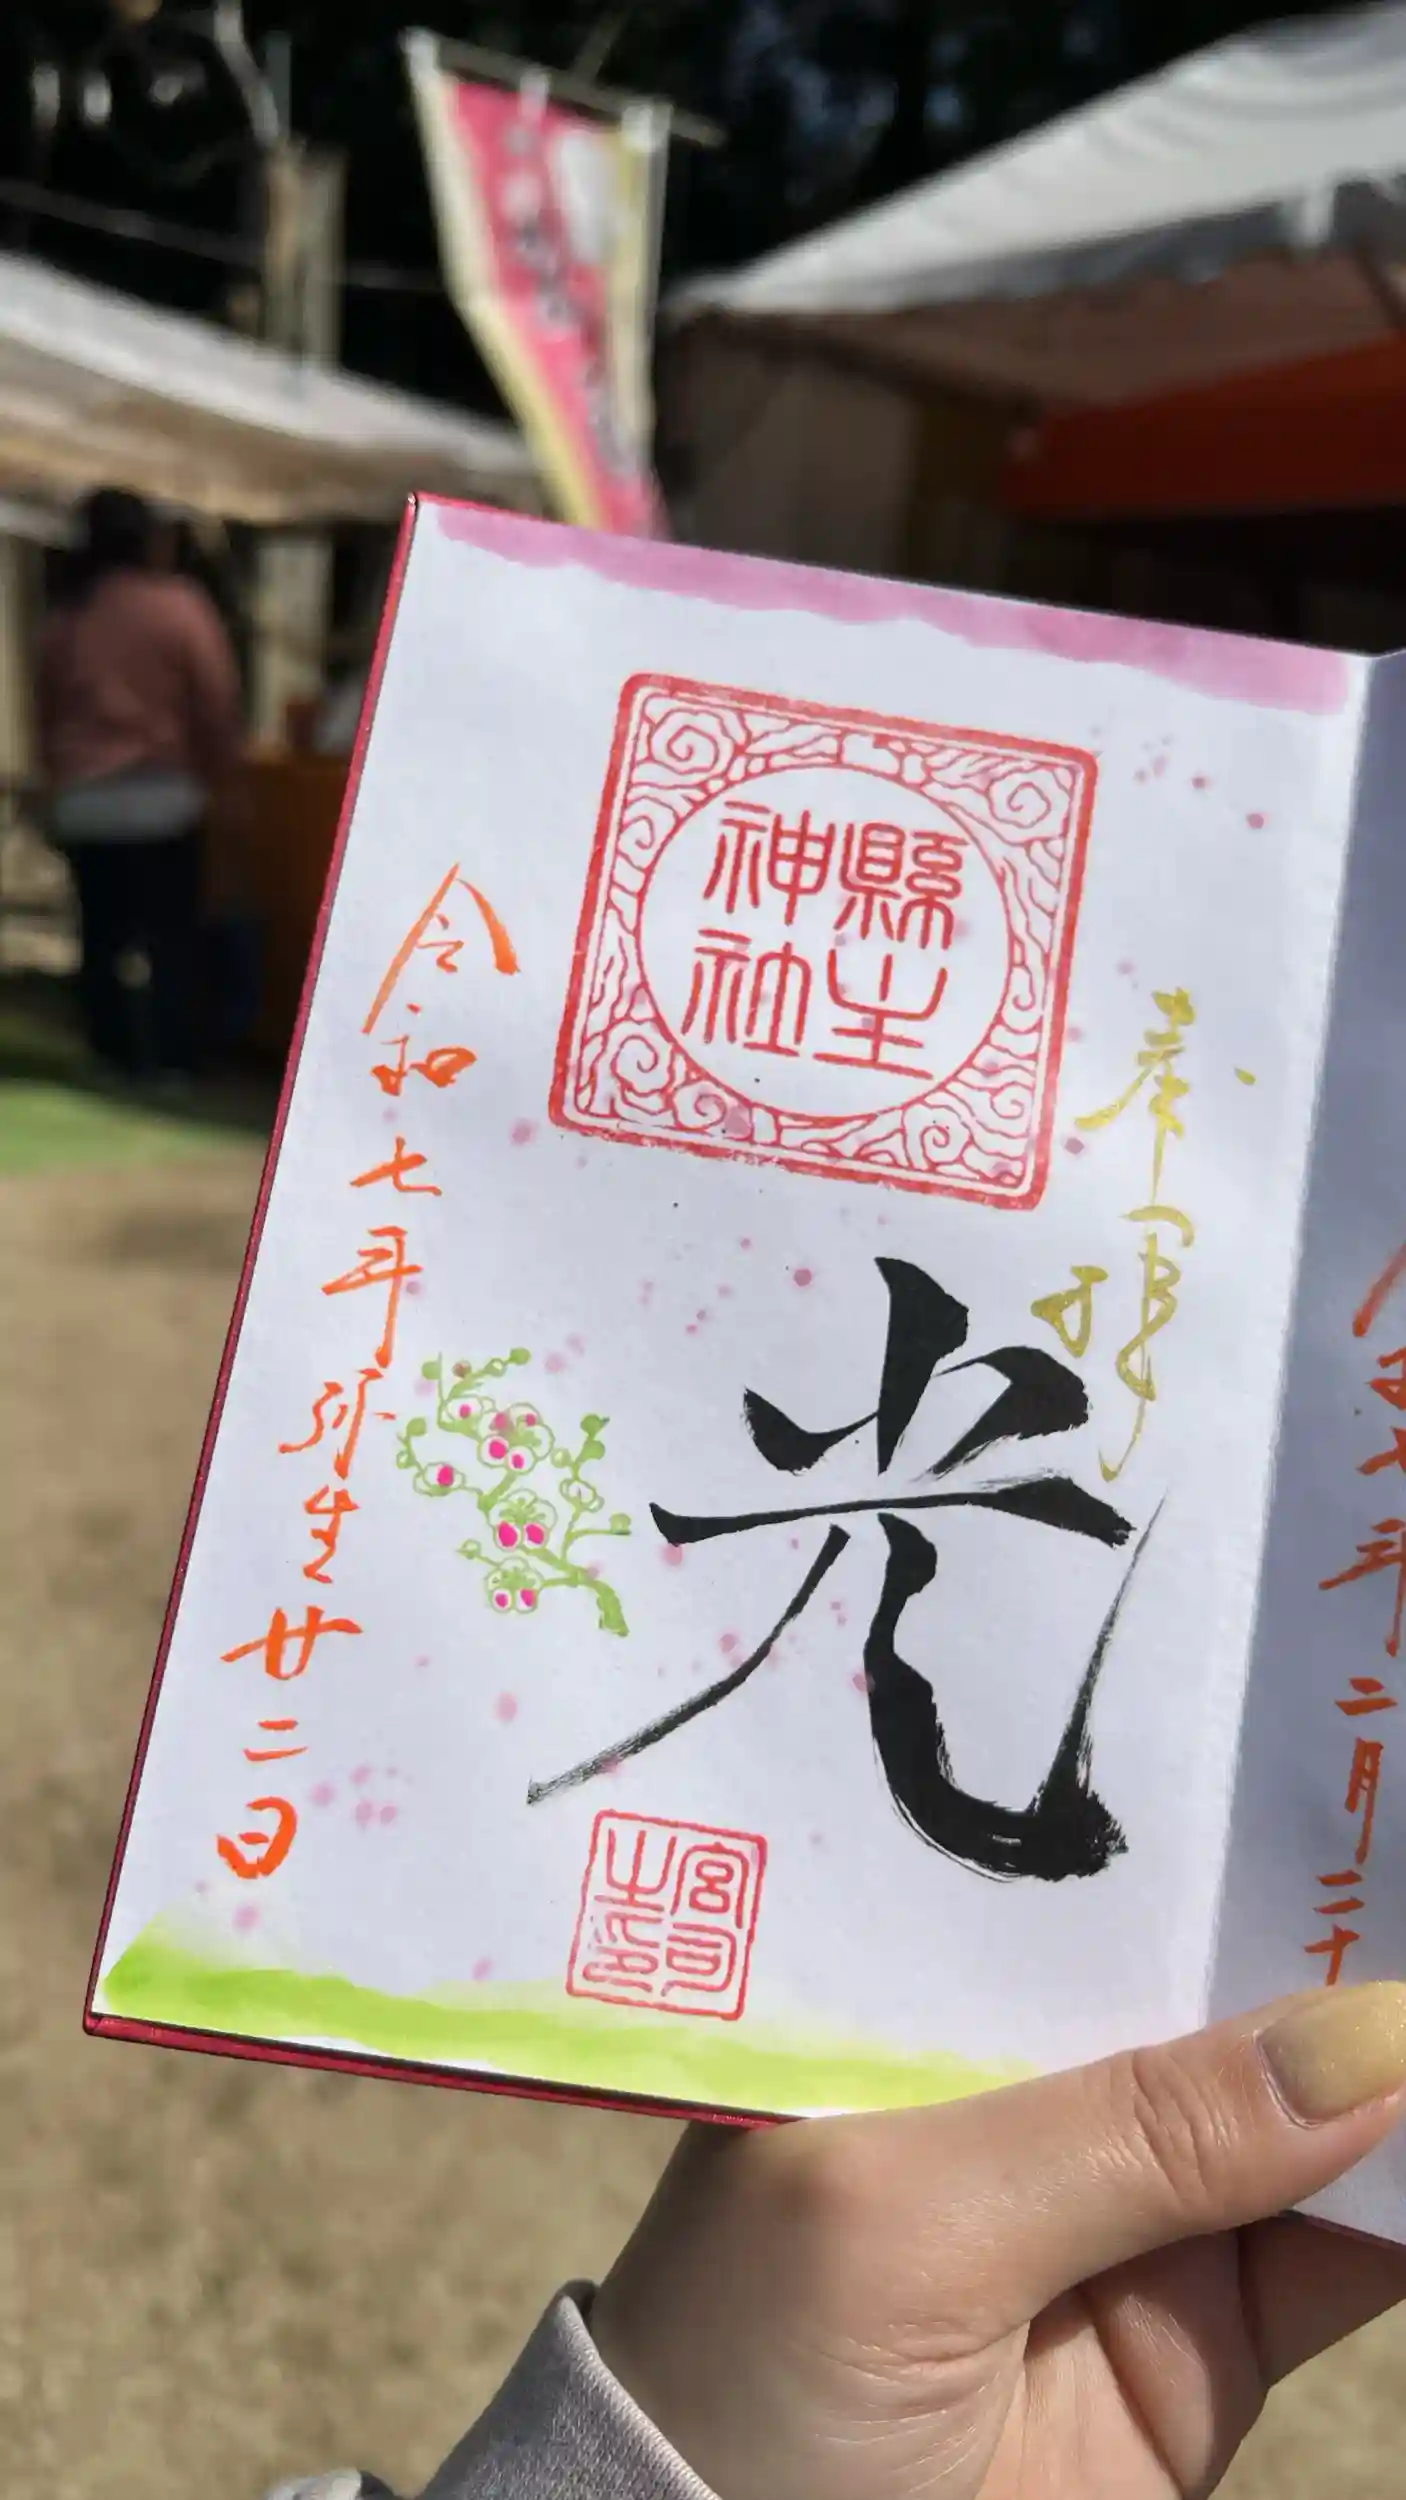 奉拝
縣主
神社
光
宮司
之印
令和七年弥生廿二日
令和七年二月二十